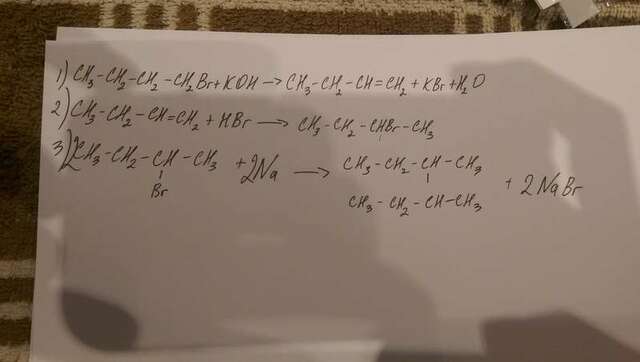 1) CH₃-CH₂-CH₂-CH₂Br+KOH → CH₃-CH₂-CH=CH₂ + KBr + H₂O
2) CH₃-CH₂-CH=CH₂ + HBr → CH₃-CH₂-CHBr-CH₃
3) 2CH₃-CH₂-CH-CH₃ + 2Na → CH₃-CH₂-CH-CH₃ + 2NaBr
Br
CH₃-CH₂-CH-CH₃